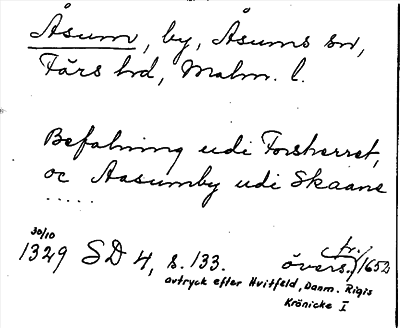 Åsum, by, Åsums sn,
Färs hd, Malm. l.
Befalning udi Forsherret,
oc Aasumby udi Skaane
.....
30/10
1329 SD 4, s. 133. övers. (tr.) 1652
avtryck efter Hvitfeld, Danm. Rigis
Krönicke I